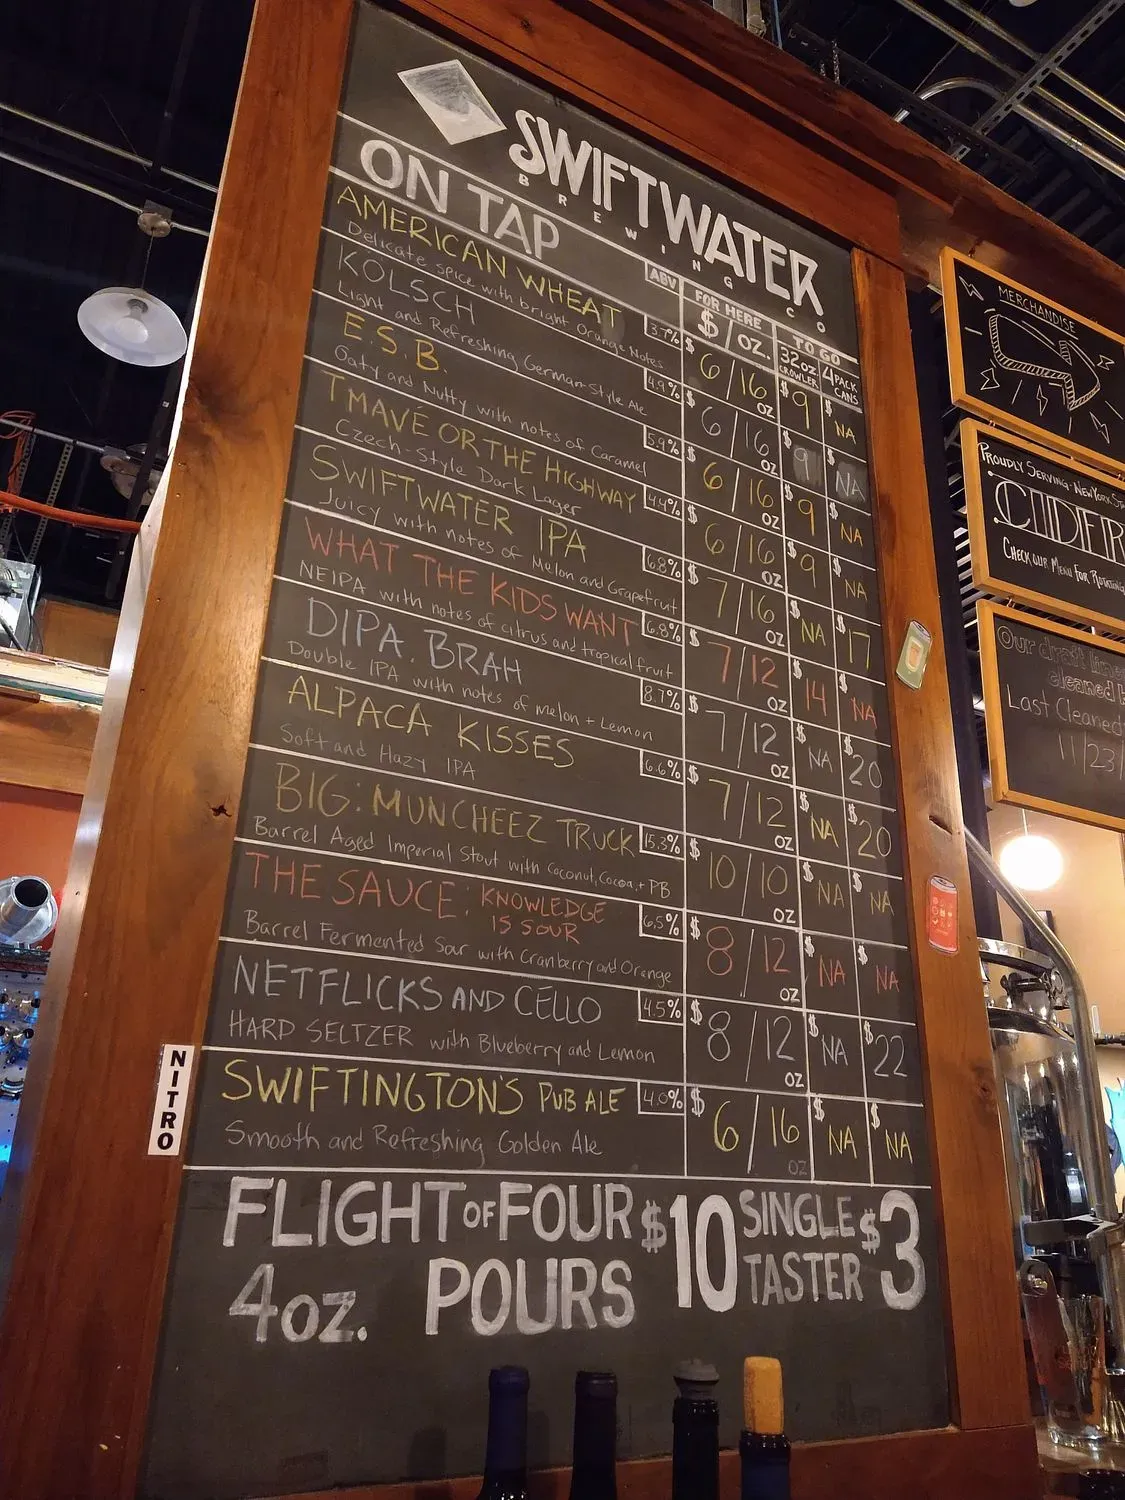 SWIFTWATER
BREWING CO
ON TAP
ABV
FOR HERE
$/OZ.
TO GO
32oz CROWLER
4 PACK CANS
AMERICAN WHEAT 3.7% $6/16 OZ $9 $NA
Delicate spice with bright Orange Notes
KOLSCH 4.9% $6/16 OZ $9 $NA
Light and Refreshing German-Style Ale
E.S.B. 5.9% $6/16 OZ $9 $NA
Oaty and Nutty with notes of Caramel
TMAVÉ OR THE HIGHWAY 4.4% $6/16 OZ $9 $NA
Czech-Style Dark Lager
SWIFTWATER IPA 6.8% $7/16 OZ $NA $17
Juicy with notes of Melon and Grapefruit
WHAT THE KIDS WANT 6.8% $7/12 OZ $14 $NA
NEIPA with notes of citrus and tropical fruit
DIPA. BRAH 8.7% $7/12 OZ $NA $20
Double IPA with notes of melon + Lemon
ALPACA KISSES 6.6% $7/12 OZ $NA $20
Soft and Hazy IPA
BIG: MUNCHEEZ TRUCK 15.3% $10/10 OZ $NA $NA
Barrel Aged Imperial Stout with Coconut, Cocoa, + PB
THE SAUCE: KNOWLEDGE IS SOUR 6.5% $8/12 OZ $NA $NA
Barrel Fermented Sour with Cranberry and Orange
NETFLICKS AND CELLO 4.5% $8/12 OZ $NA $22
HARD SELTZER with Blueberry and Lemon
NITRO
SWIFTINGTON'S PUB ALE 4.0% $6/16 OZ $NA $NA
Smooth and Refreshing Golden Ale
FLIGHT OF FOUR $10 SINGLE $3
4oz. POURS TASTER
MERCHANDISE
PROUDLY SERVING NEW YORK
CIDER
CHECK OUR MENU FOR
Our draft
cleaned
Last Cleaned
11/23/